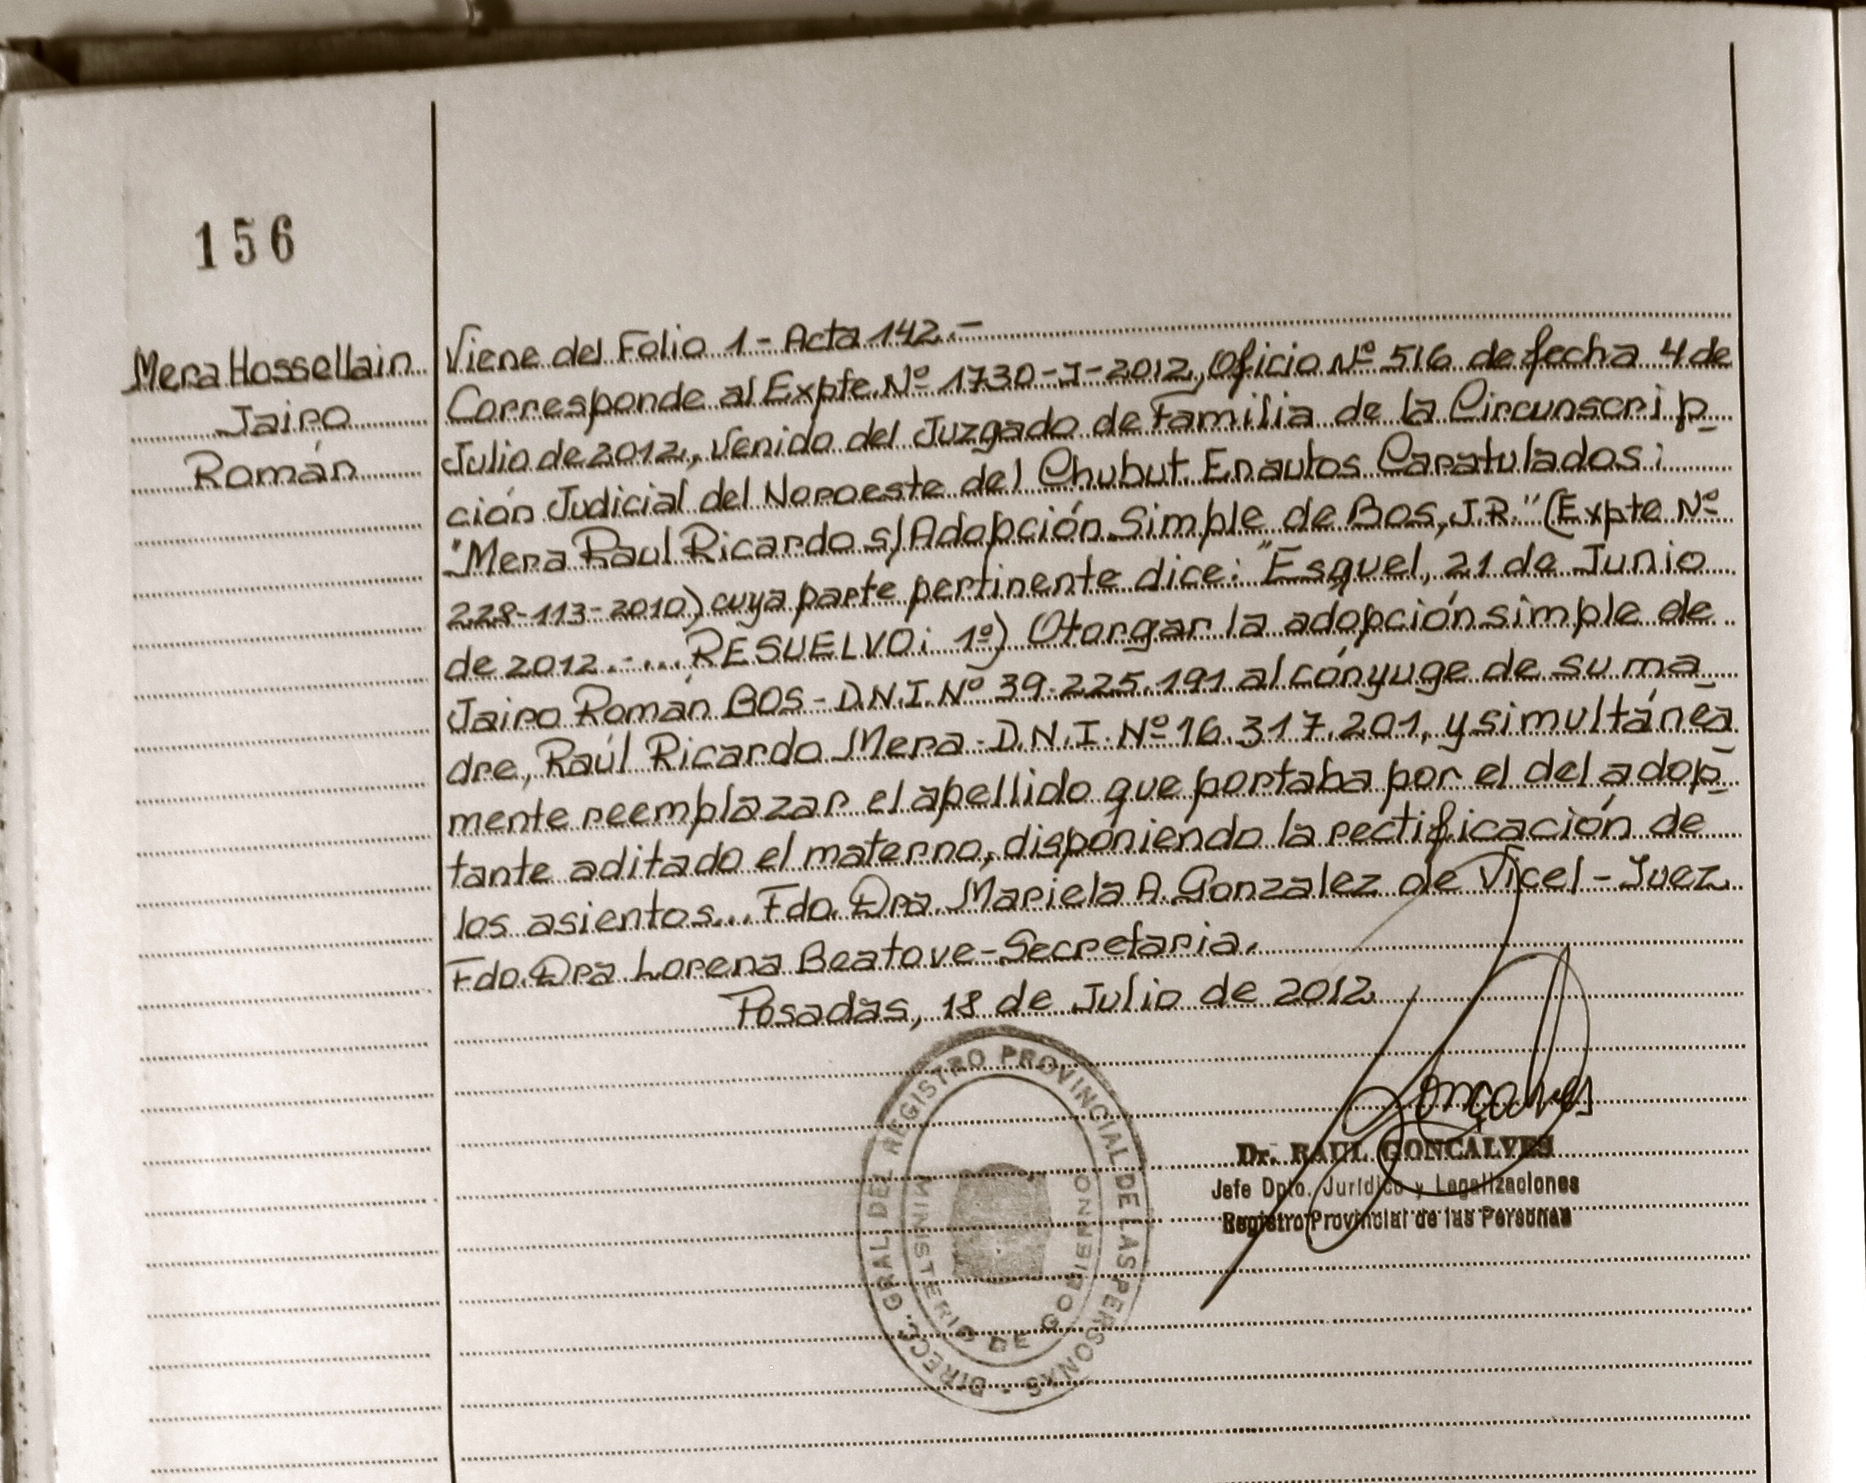 156
Mera Hossellain
Jairo
Román
Viene del Folio 1 - Acta 142.-
Corresponde al Expte. Nº 1730-I-2012, Oficio Nº 516 de fecha 4 de
Julio de 2012, Venido del Juzgado de Familia de la Circunscrip
ción Judicial del Noroeste del Chubut. En autos Caratulados:
"Mera Raul Ricardo s/Adopción Simple de Bos, J.R." (Expte Nº
228-113-2010) cuya parte pertinente dice: "Esquel, 21 de Junio
de 2012.-... RESUELVO: 1º) Otorgar la adopción simple de
Jairo Román BOS - D.N.I. Nº 39.225.191 al cónyuge de su ma
dre, Raúl Ricardo Mera - D.N.I. Nº 16.317.201, y simultánea
mente reemplazar el apellido que portaba por el del adop
tante aditado el materno, disponiendo la rectificación de
los asientos... Fdo. Dra. Mariela A. Gonzalez de Vicel - Juez
Fdo. Dra Lorena Beatove - Secretaria.
Posadas, 18 de Julio de 2012
DIRECC. GRAL. DEL REGISTRO PROVINCIAL DE LAS PERSONAS -
MINISTERIO DE GOBIERNO
Dr. RAUL GONCALVES
Jefe Dpto. Jurídico y Legalizaciones
Registro Provincial de las Personas